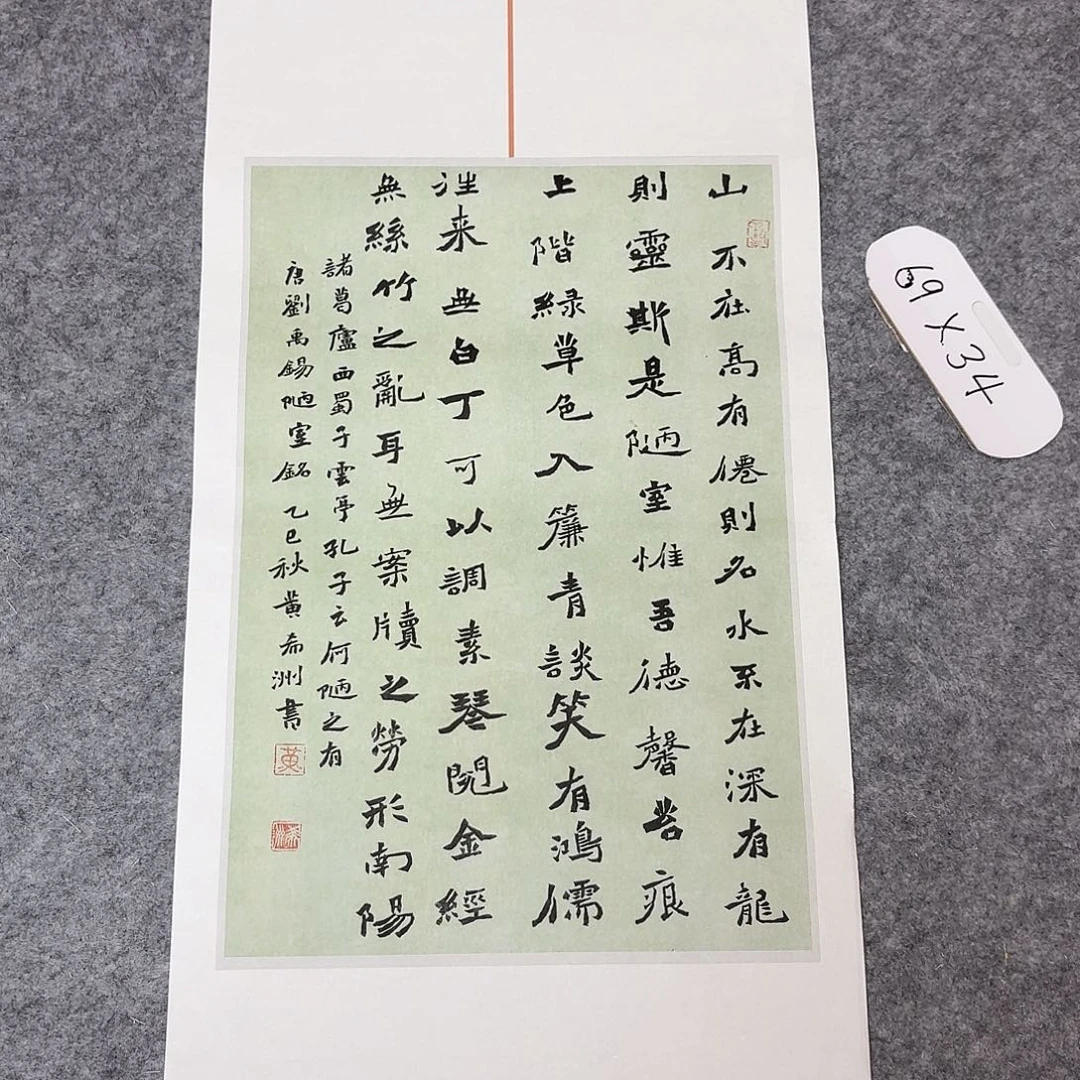 山不在高有僊則名水不在深有龍
則靈斯是陋室惟吾德馨苔痕
上階緑草色入簾青談笑有鴻儒
往来無白丁可以調素琴閱金經
無絲竹之亂耳無案牘之勞形南陽
諸葛廬西蜀子雲亭孔子云何陋之有
唐劉禹錫陋室銘乙巳秋黄希洲書
黄
希洲
69X34